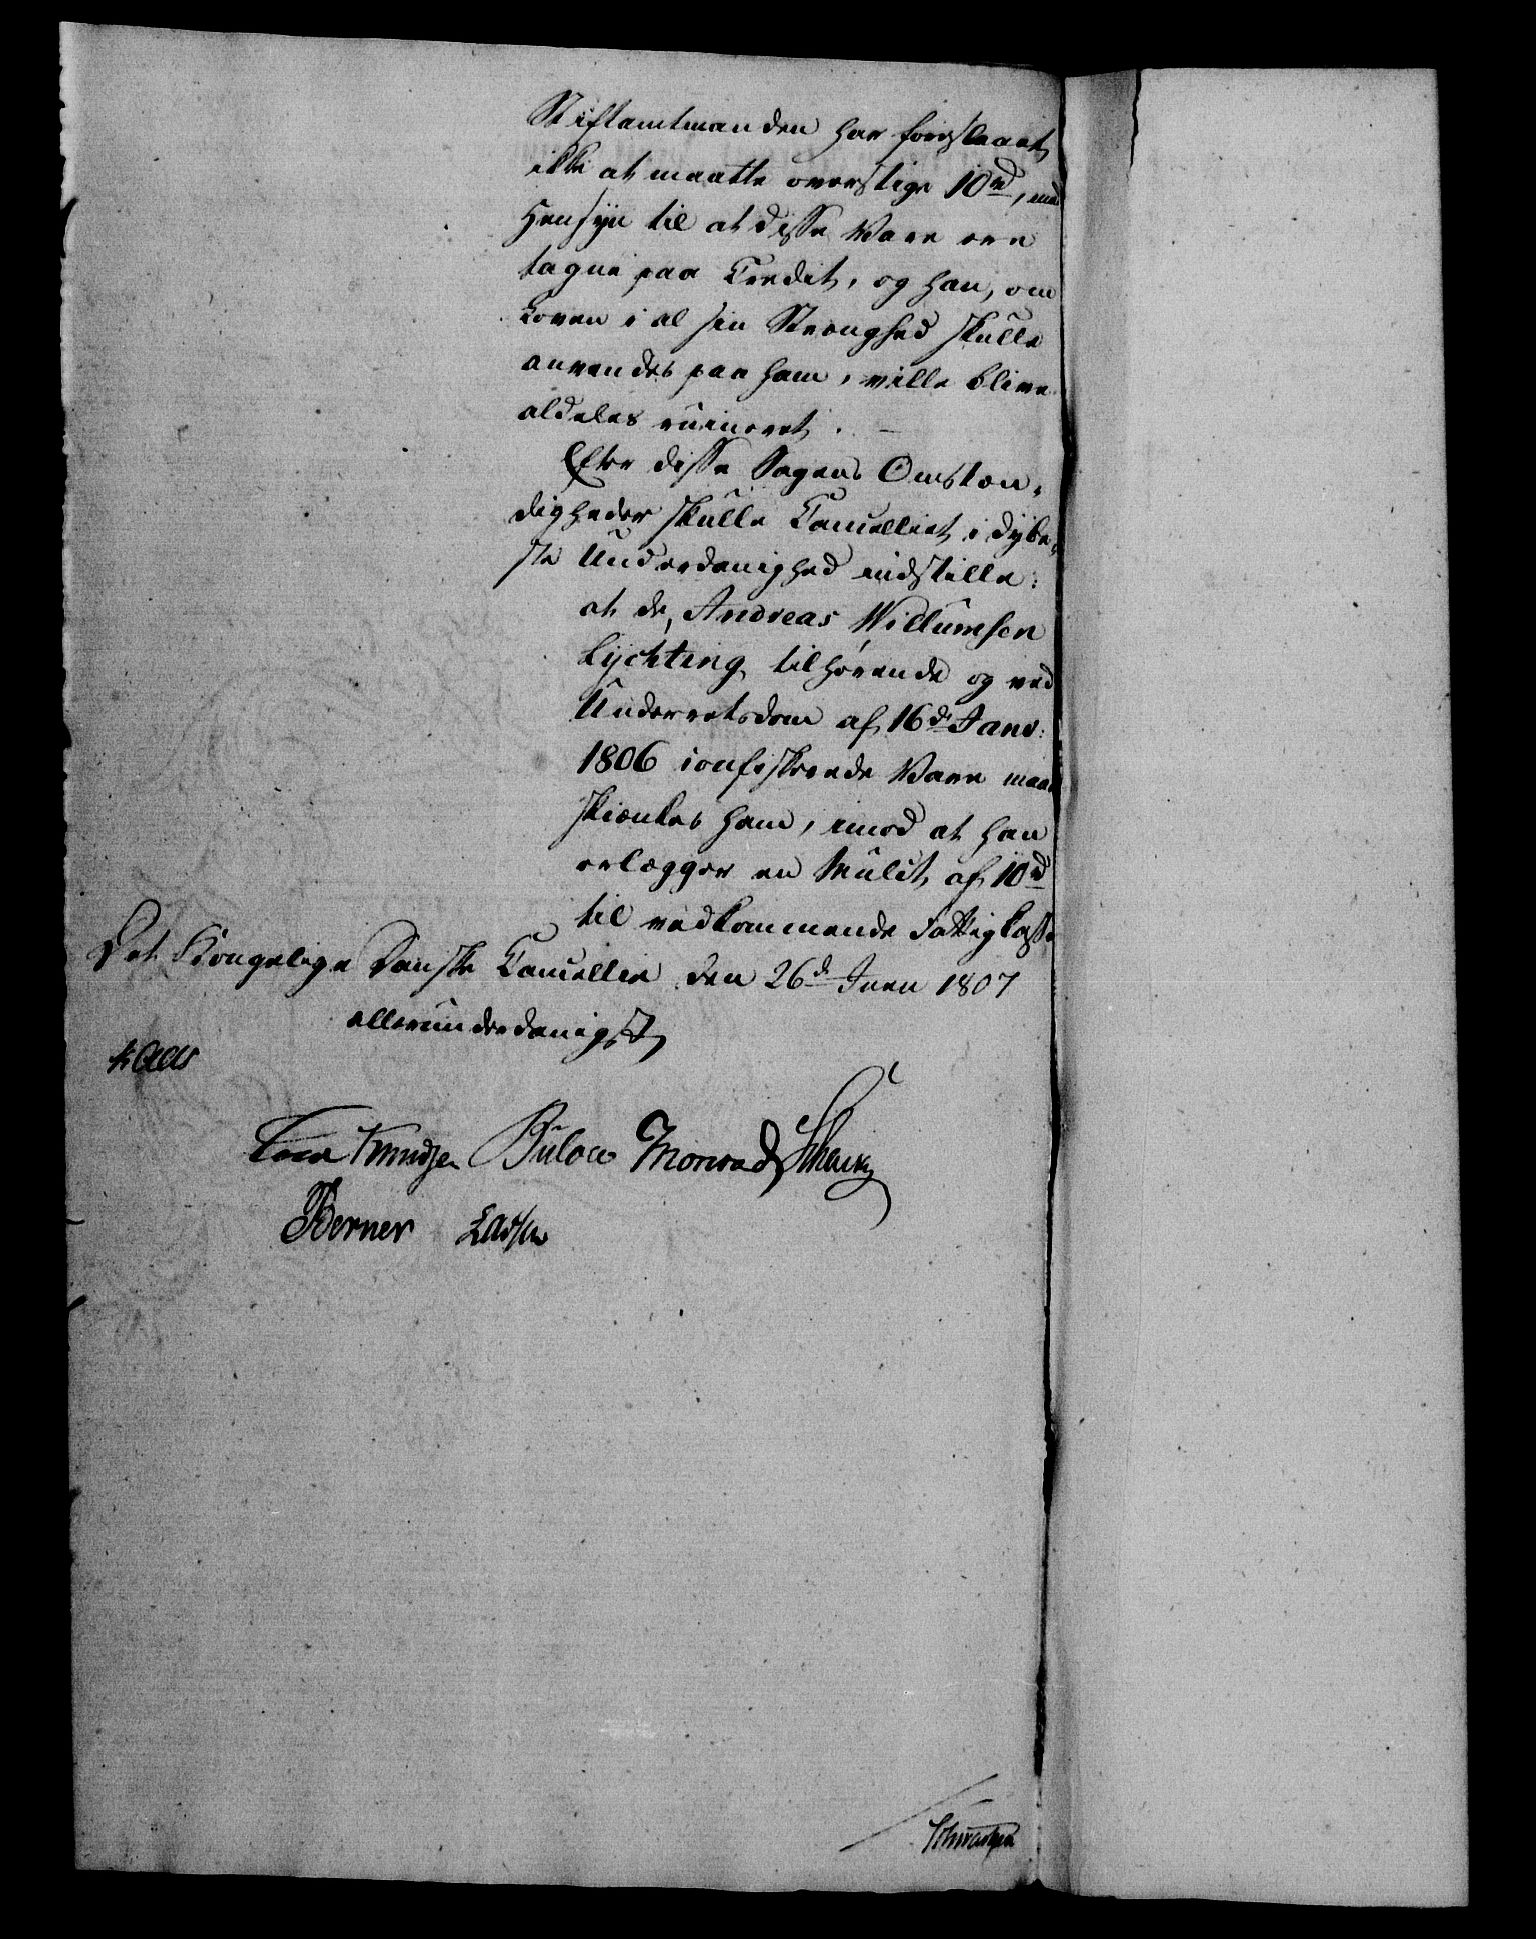 Stiftamtmanden har foreslaaet
ikke at maatte overstige 10rd, med
Hensyn til at disse Vare ere
tagne paa Credit, og han, om
Loven i al sin Strenghed skulle
anvendes paa ham, ville blive
aldeles ruineret. –
Efter disse Sagens Omstæn-
digheder skulle Cancelliet i dybe-
ste Underdanighed indstille:
at de, Andreas Willumsen
Lychting tilhørende og ved
Underretsdom af 16de Janv:
1806 confiskerede Vare maae
skienkes ham, imod at han
erlægger en Mulct af 10rd
til vedkommende Fattigkasse
Det Kongelige Danske Cancellie den 26de Juni 1807
allerunderdanigst
Kaas
Cold Knudsen Bülow Monrad
Berner Lassen